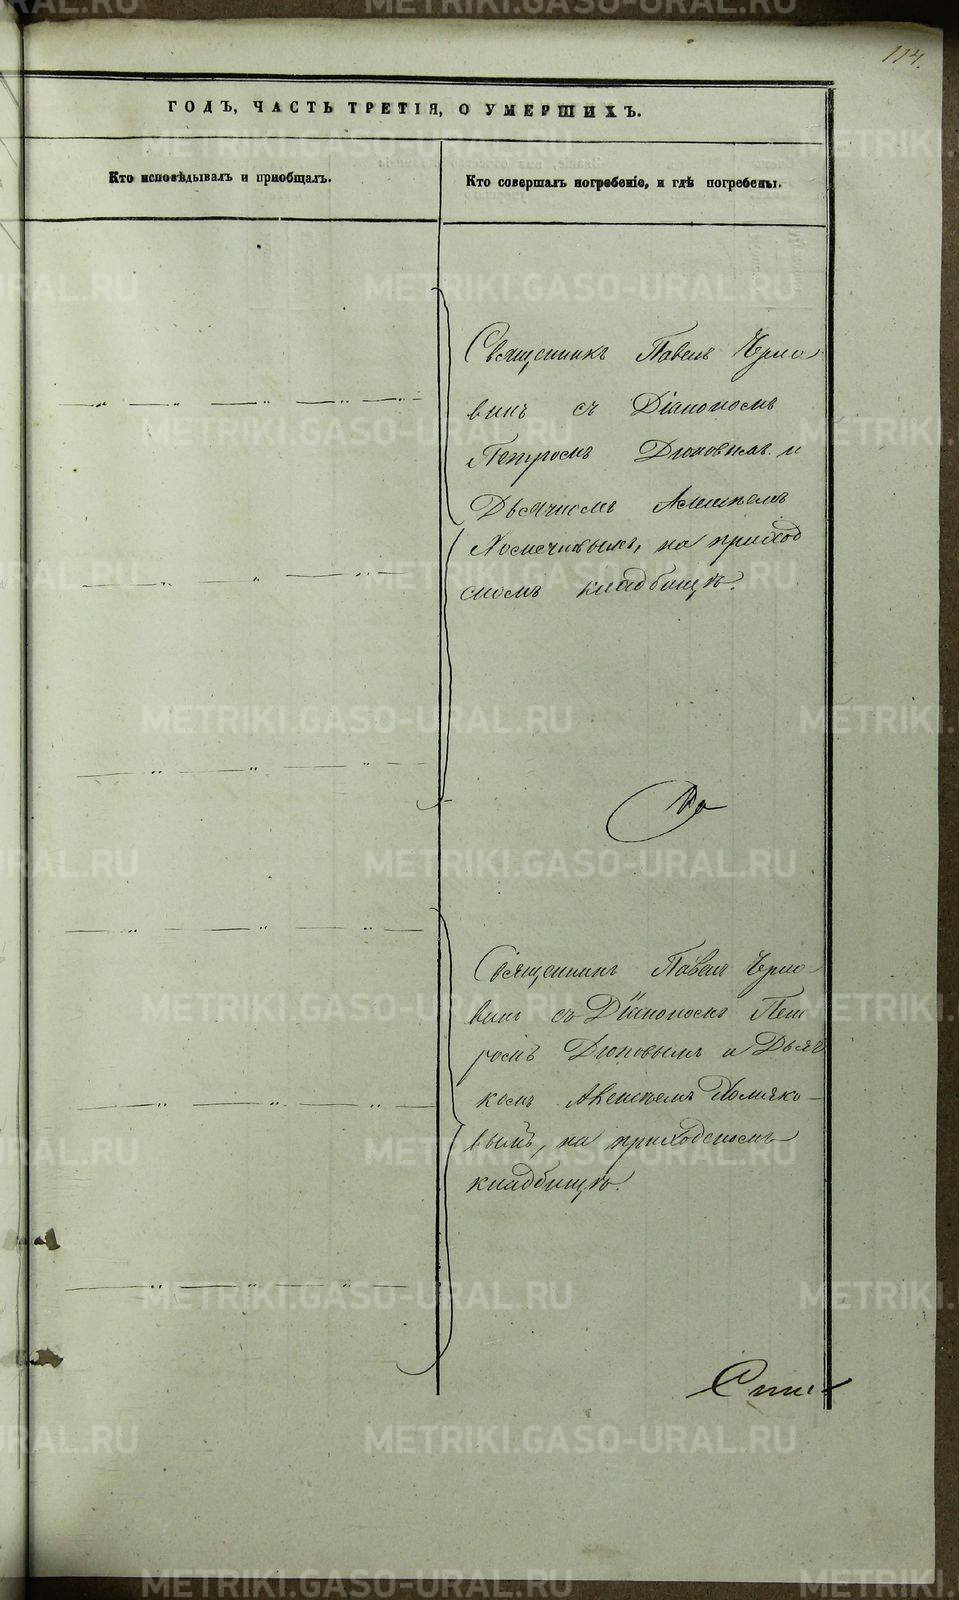 114.
ГОДЪ, ЧАСТЬ ТРЕТІЯ, О УМЕРШИХЪ.
Кто исповѣдывалъ и пріобщалъ.
Кто совершалъ погребеніе, и гдѣ погребены.
Священникъ Павелъ Черно
винъ съ Діакономъ
Петромъ Дюковымъ и
Дьячкомъ
на приход
скомъ кладбищѣ.
Священникъ Павелъ Черно-
винъ съ Діакономъ Пет
ромъ Дюковымъ и Дьяч
комъ Хомяко-
вымъ, на приходскомъ
кладбищѣ.
METRIKI.GASO-URAL.RU